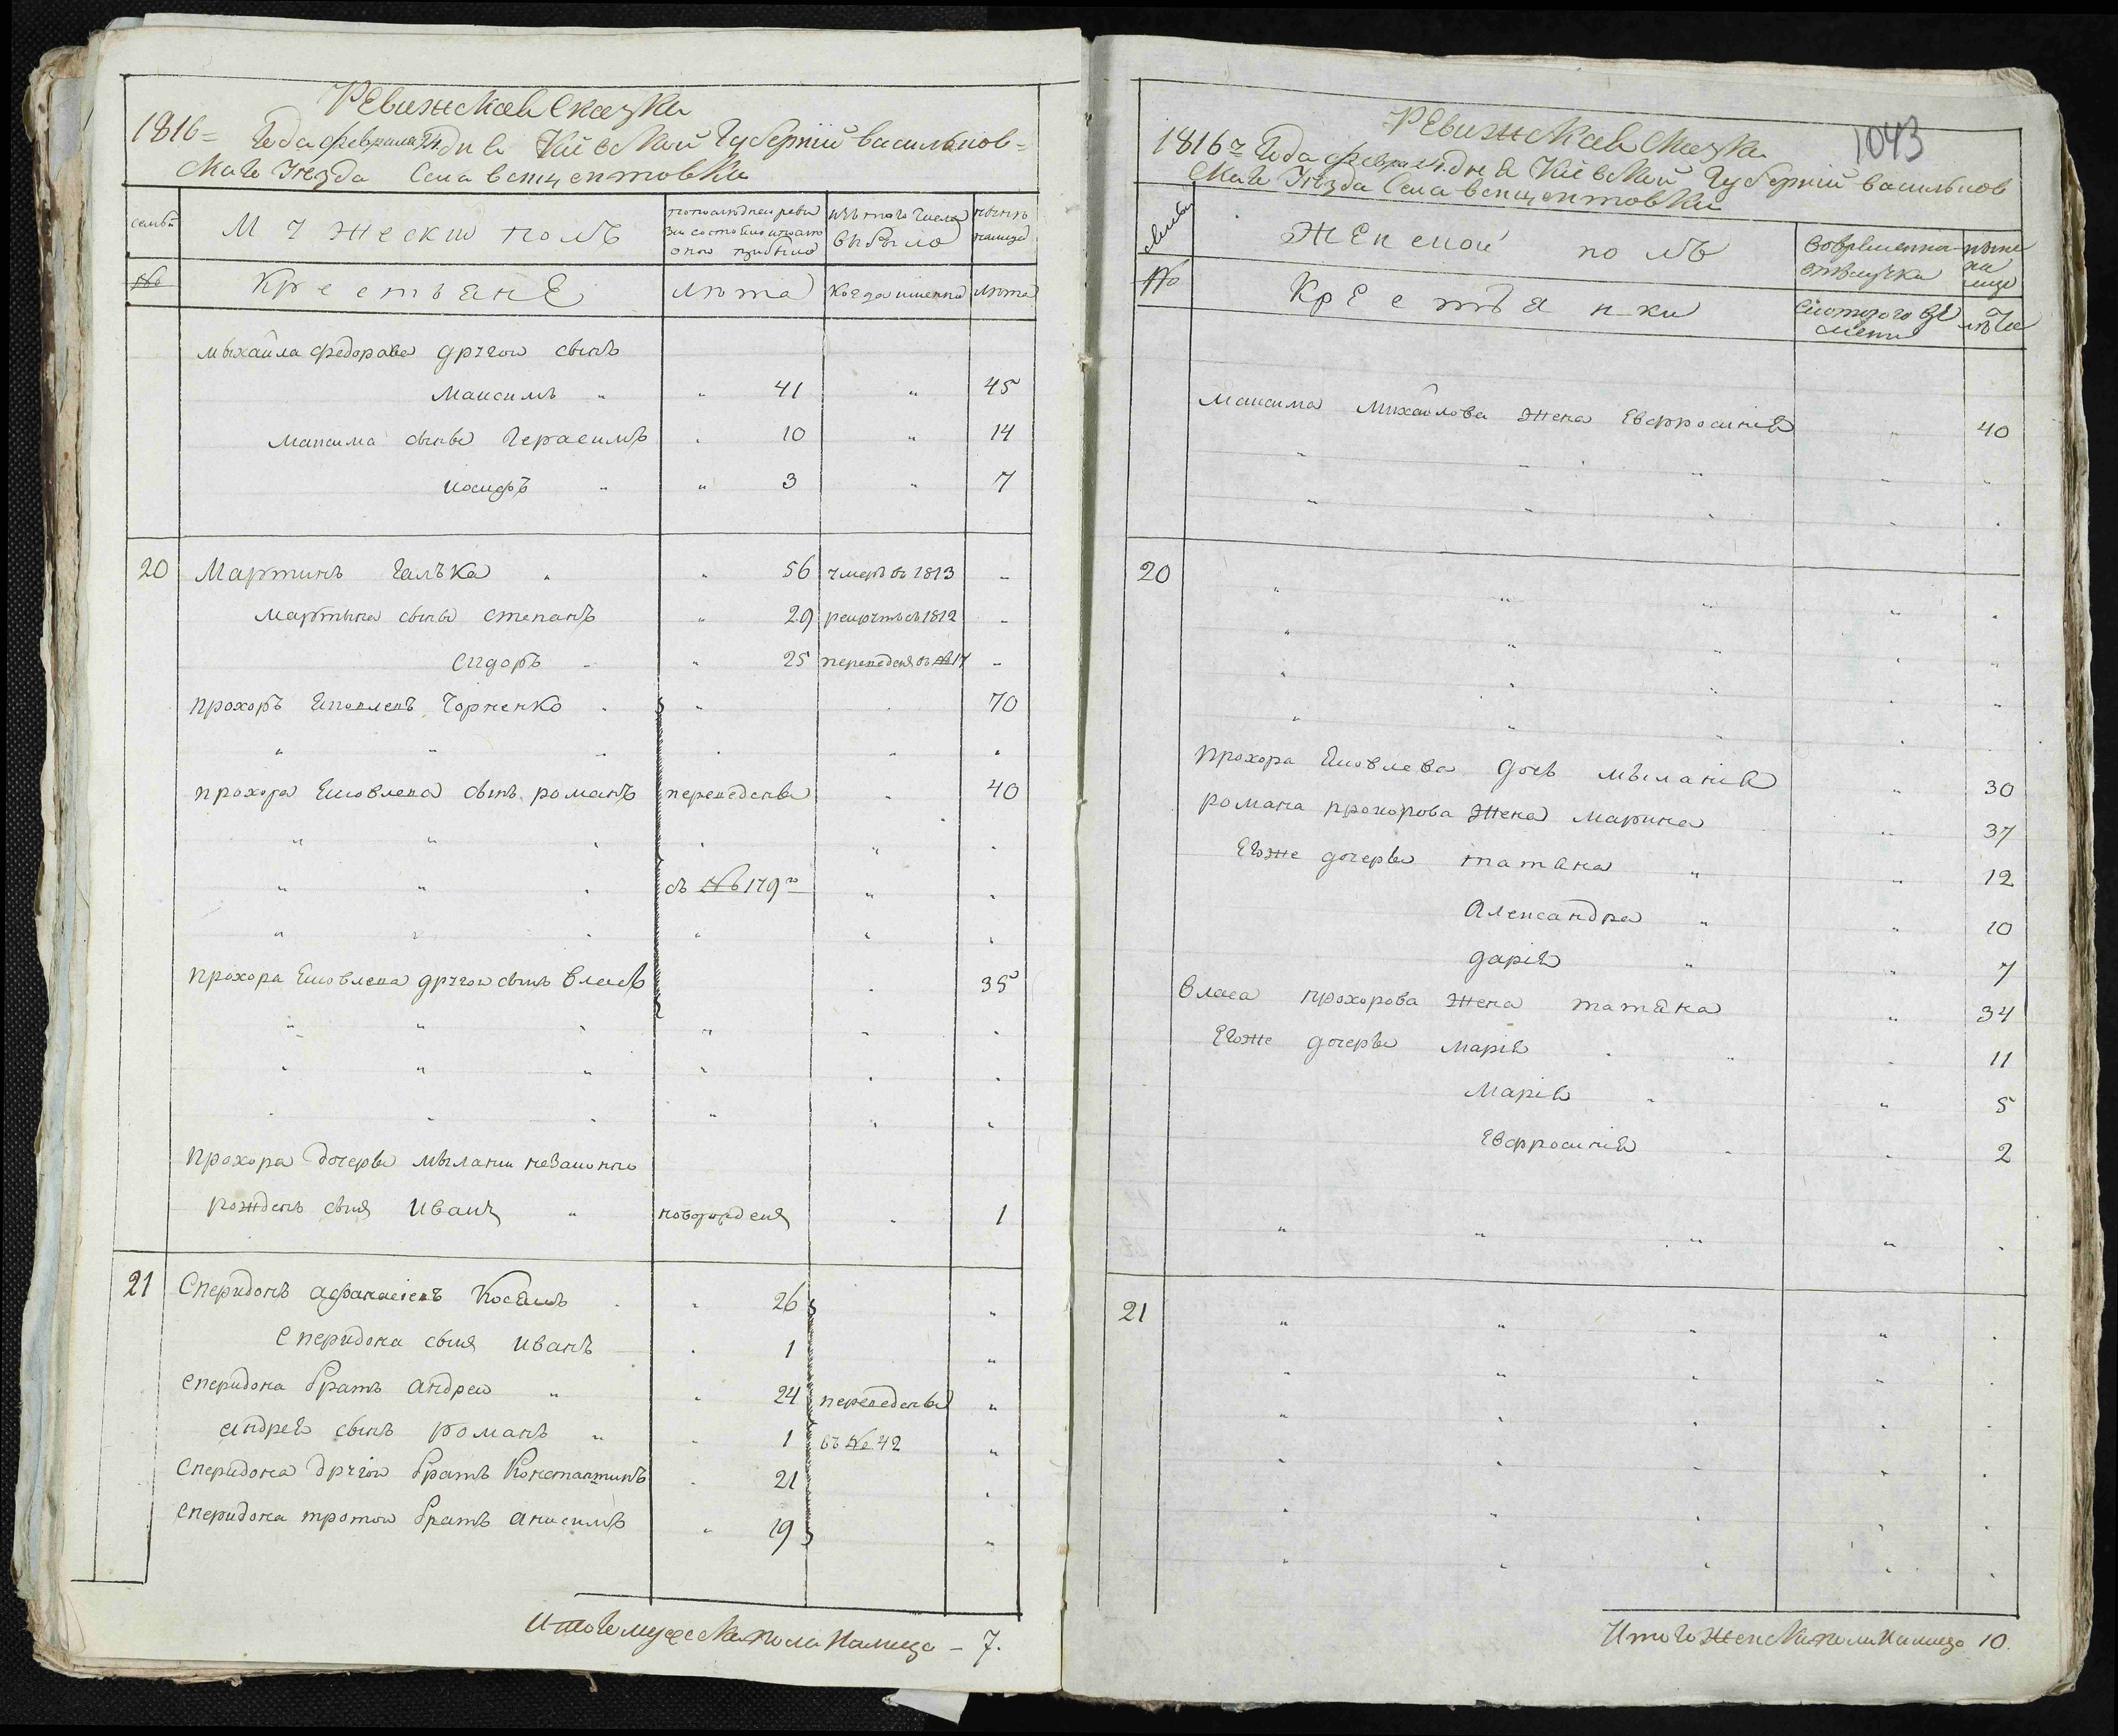 Ревижская Сказка
1816 Года февраля дня Киевской Губернии васильков-
скаго Уезда Села
семьи
Мужеский полъ
по последней реви
зии состояло и после
оной прибыло
изъ того числа
выбыло
ныне
налицо
№
Крестьяне
Лета
Когда именно
Лета
михайла федорова другой сынъ
Максимъ " " 41 " 45
Максима сыны Герасимъ " 10 " 14
иосифъ " " 3 " 7
20 Мартинъ Галъка " " 56 умеръ въ 1813 -
мартына сыны степанъ " 29 рекрутъ съ 1812 -
сидоръ - " 25 переведенъ въ №17 -
прохоръ Яковлевъ Чорненко " " " 70
прохора Яковлева сынъ романъ переведены " 40
съ № 179го
прохора Яковлева другой сынъ власъ " 35
прохора дочери мыланіи незаконно
рожденъ сынъ Иванъ " новорожденъ " 1
21 Сперидонъ афанасіевъ Косянъ " " 26 "
Сперидона сынъ иванъ " 1 "
сперидона братъ андрей " " 24 переведены "
андрея сынъ романъ " " 1 въ № 42 "
сперидона другой братъ Константинъ " 21 "
сперидона третой братъ анисимъ " 19 "
Итого мужеска пола Налицо - 7.
1043
Ревижская Сказка
1816г Года февра дня Киевской Губернии васильков
скаго Уезда Села
семьи
Женской полъ
Во временной
отлучке
ныне
на
лицо
№
Крестьянки
Съ которого вре
мени
лета
Максима михайлова жена Евфросинія " 40
20
прохора Яковлева дочь мыланія " 30
романа прохорова жена марина " 37
Егоже дочери татяна " " 12
Александра " " 10
дарія " " 7
власа прохорова жена татяна " 34
Егоже дочери марія " " 11
марія " " 5
Евфросинія " " 2
21
Итого женска пола Налицо 10.